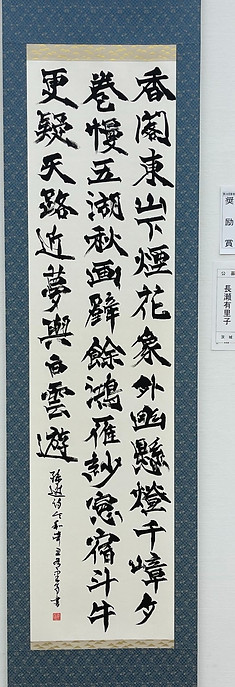 香閣東山下煙花象外幽懸燈千嶂夕
巻幔五湖秋画壁餘鴻雁紗窓宿斗牛
更疑天路近夢與白雲遊
孫逖詩
奨励賞
長瀬有里子